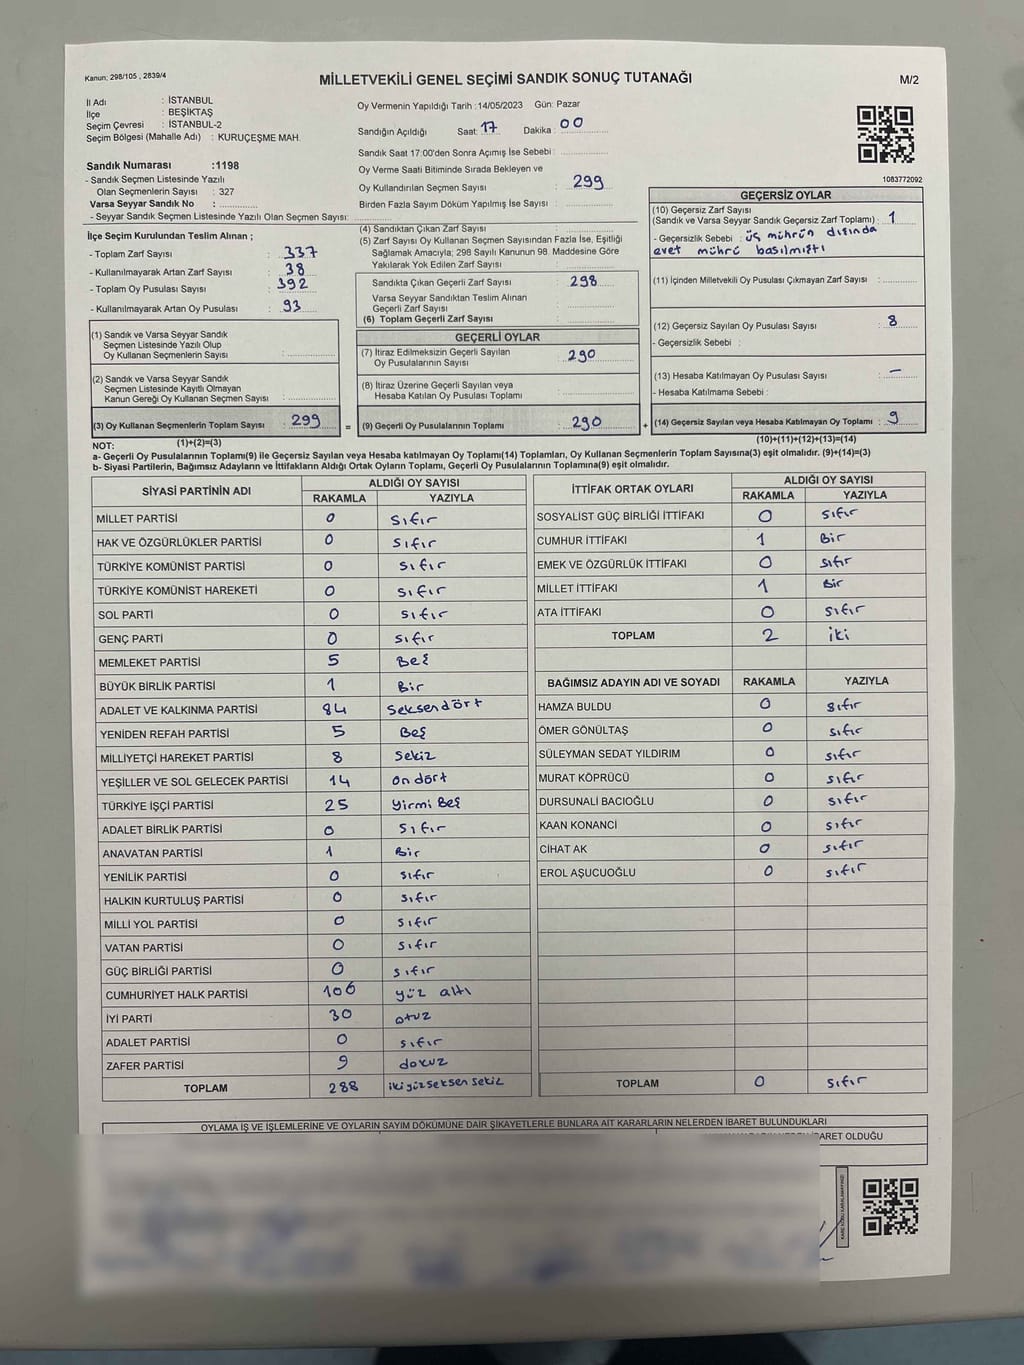 Kanun: 298/105 , 2839/4
MİLLETVEKİLİ GENEL SEÇİMİ SANDIK SONUÇ TUTANAĞI
M/2
İl Adı : İSTANBUL
İlçe : BEŞİKTAŞ
Seçim Çevresi : İSTANBUL-2
Seçim Bölgesi (Mahalle Adı) : KURUÇEŞME MAH.
Sandık Numarası :1198
- Sandık Seçmen Listesinde Yazılı
Olan Seçmenlerin Sayısı : 327
Varsa Seyyar Sandık No :
- Seyyar Sandık Seçmen Listesinde Yazılı Olan Seçmen Sayısı:
Oy Vermenin Yapıldığı Tarih :14/05/2023 Gün: Pazar
Sandığın Açıldığı Saat: 17 Dakika : 00
Sandık Saat 17:00'den Sonra Açımış İse Sebebi :
Oy Verme Saati Bitiminde Sırada Bekleyen ve
Oy Kullandırılan Seçmen Sayısı 299
Birden Fazla Sayım Döküm Yapılmış İse Sayısı :
1083772092
İlçe Seçim Kurulundan Teslim Alınan ;
- Toplam Zarf Sayısı : 337
- Kullanılmayarak Artan Zarf Sayısı : 38
- Toplam Oy Pusulası Sayısı : 392
- Kullanılmayarak Artan Oy Pusulası : 93
(1) Sandık ve Varsa Seyyar Sandık
Seçmen Listesinde Yazılı Olup
Oy Kullanan Seçmenlerin Sayısı :
(2) Sandık ve Varsa Seyyar Sandık
Seçmen Listesinde Kayıtlı Olmayan
Kanun Gereği Oy Kullanan Seçmen Sayısı :
(3) Oy Kullanan Seçmenlerin Toplam Sayısı : 299
(4) Sandıktan Çıkan Zarf Sayısı :
(5) Zarf Sayısı Oy Kullanan Seçmen Sayısından Fazla İse, Eşitliği
Sağlamak Amacıyla; 298 Sayılı Kanunun 98. Maddesine Göre
Yakılarak Yok Edilen Zarf Sayısı :
Sandıkta Çıkan Geçerli Zarf Sayısı : 298
Varsa Seyyar Sandıktan Teslim Alınan
Geçerli Zarf Sayısı :
(6) Toplam Geçerli Zarf Sayısı :
GEÇERLİ OYLAR
(7) İtiraz Edilmeksizin Geçerli Sayılan
Oy Pusulalarının Sayısı : 290
(8) İtiraz Üzerine Geçerli Sayılan veya
Hesaba Katılan Oy Pusulası Toplamı :
= (9) Geçerli Oy Pusulalarının Toplamı : 290 +
GEÇERSİZ OYLAR
(10) Geçersiz Zarf Sayısı
(Sandık ve Varsa Seyyar Sandık Geçersiz Zarf Toplamı) : 1
- Geçersizlik Sebebi : üç mührün dışında
evet mührü basılmıştı
(11) İçinden Milletvekili Oy Pusulası Çıkmayan Zarf Sayısı :
(12) Geçersiz Sayılan Oy Pusulası Sayısı : 8
- Geçersizlik Sebebi :
(13) Hesaba Katılmayan Oy Pusulası Sayısı : –
- Hesaba Katılmama Sebebi :
(14) Geçersiz Sayılan veya Hesaba Katılmayan Oy Toplamı : 9
NOT: (1)+(2)=(3)
(10)+(11)+(12)+(13)=(14)
a- Geçerli Oy Pusulalarının Toplamı(9) ile Geçersiz Sayılan veya Hesaba katılmayan Oy Toplamı(14) Toplamları, Oy Kullanan Seçmenlerin Toplam Sayısına(3) eşit olmalıdır. (9)+(14)=(3)
b- Siyasi Partilerin, Bağımsız Adayların ve İttifakların Aldığı Ortak Oyların Toplamı, Geçerli Oy Pusulalarının Toplamına(9) eşit olmalıdır.
SİYASİ PARTİNİN ADI ALDIĞI OY SAYISI
RAKAMLA YAZIYLA
MİLLET PARTİSİ 0 sıfır
HAK VE ÖZGÜRLÜKLER PARTİSİ 0 sıfır
TÜRKİYE KOMÜNİST PARTİSİ 0 sıfır
TÜRKİYE KOMÜNİST HAREKETİ 0 sıfır
SOL PARTİ 0 sıfır
GENÇ PARTİ 0 sıfır
MEMLEKET PARTİSİ 5 Beş
BÜYÜK BİRLİK PARTİSİ 1 Bir
ADALET VE KALKINMA PARTİSİ 84 Seksendört
YENİDEN REFAH PARTİSİ 5 Beş
MİLLİYETÇİ HAREKET PARTİSİ 8 Sekiz
YEŞİLLER VE SOL GELECEK PARTİSİ 14 on dört
TÜRKİYE İŞÇİ PARTİSİ 25 Yirmi Beş
ADALET BİRLİK PARTİSİ 0 sıfır
ANAVATAN PARTİSİ 1 Bir
YENİLİK PARTİSİ 0 sıfır
HALKIN KURTULUŞ PARTİSİ 0 sıfır
MİLLİ YOL PARTİSİ 0 sıfır
VATAN PARTİSİ 0 sıfır
GÜÇ BİRLİĞİ PARTİSİ 0 sıfır
CUMHURİYET HALK PARTİSİ 106 yüz altı
İYİ PARTİ 30 otuz
ADALET PARTİSİ 0 sıfır
ZAFER PARTİSİ 9 dokuz
TOPLAM 288 ikiyüzseksen sekiz
İTTİFAK ORTAK OYLARI ALDIĞI OY SAYISI
RAKAMLA YAZIYLA
SOSYALİST GÜÇ BİRLİĞİ İTTİFAKI 0 sıfır
CUMHUR İTTİFAKI 1 Bir
EMEK VE ÖZGÜRLÜK İTTİFAKI 0 sıfır
MİLLET İTTİFAKI 1 Bir
ATA İTTİFAKI 0 sıfır
TOPLAM 2 iki
BAĞIMSIZ ADAYIN ADI VE SOYADI RAKAMLA YAZIYLA
HAMZA BULDU 0 sıfır
ÖMER GÖNÜLTAŞ 0 sıfır
SÜLEYMAN SEDAT YILDIRIM 0 sıfır
MURAT KÖPRÜCÜ 0 sıfır
DURSUNALİ BACIOĞLU 0 sıfır
KAAN KONANCİ 0 sıfır
CİHAT AK 0 sıfır
EROL AŞUCUOĞLU 0 sıfır
TOPLAM 0 sıfır
OYLAMA İŞ VE İŞLEMLERİNE VE OYLARIN SAYIM DÖKÜMÜNE DAİR ŞİKAYETLERLE BUNLARA AİT KARARLARIN NELERDEN İBARET BULUNDUKLARI
OLDUĞU